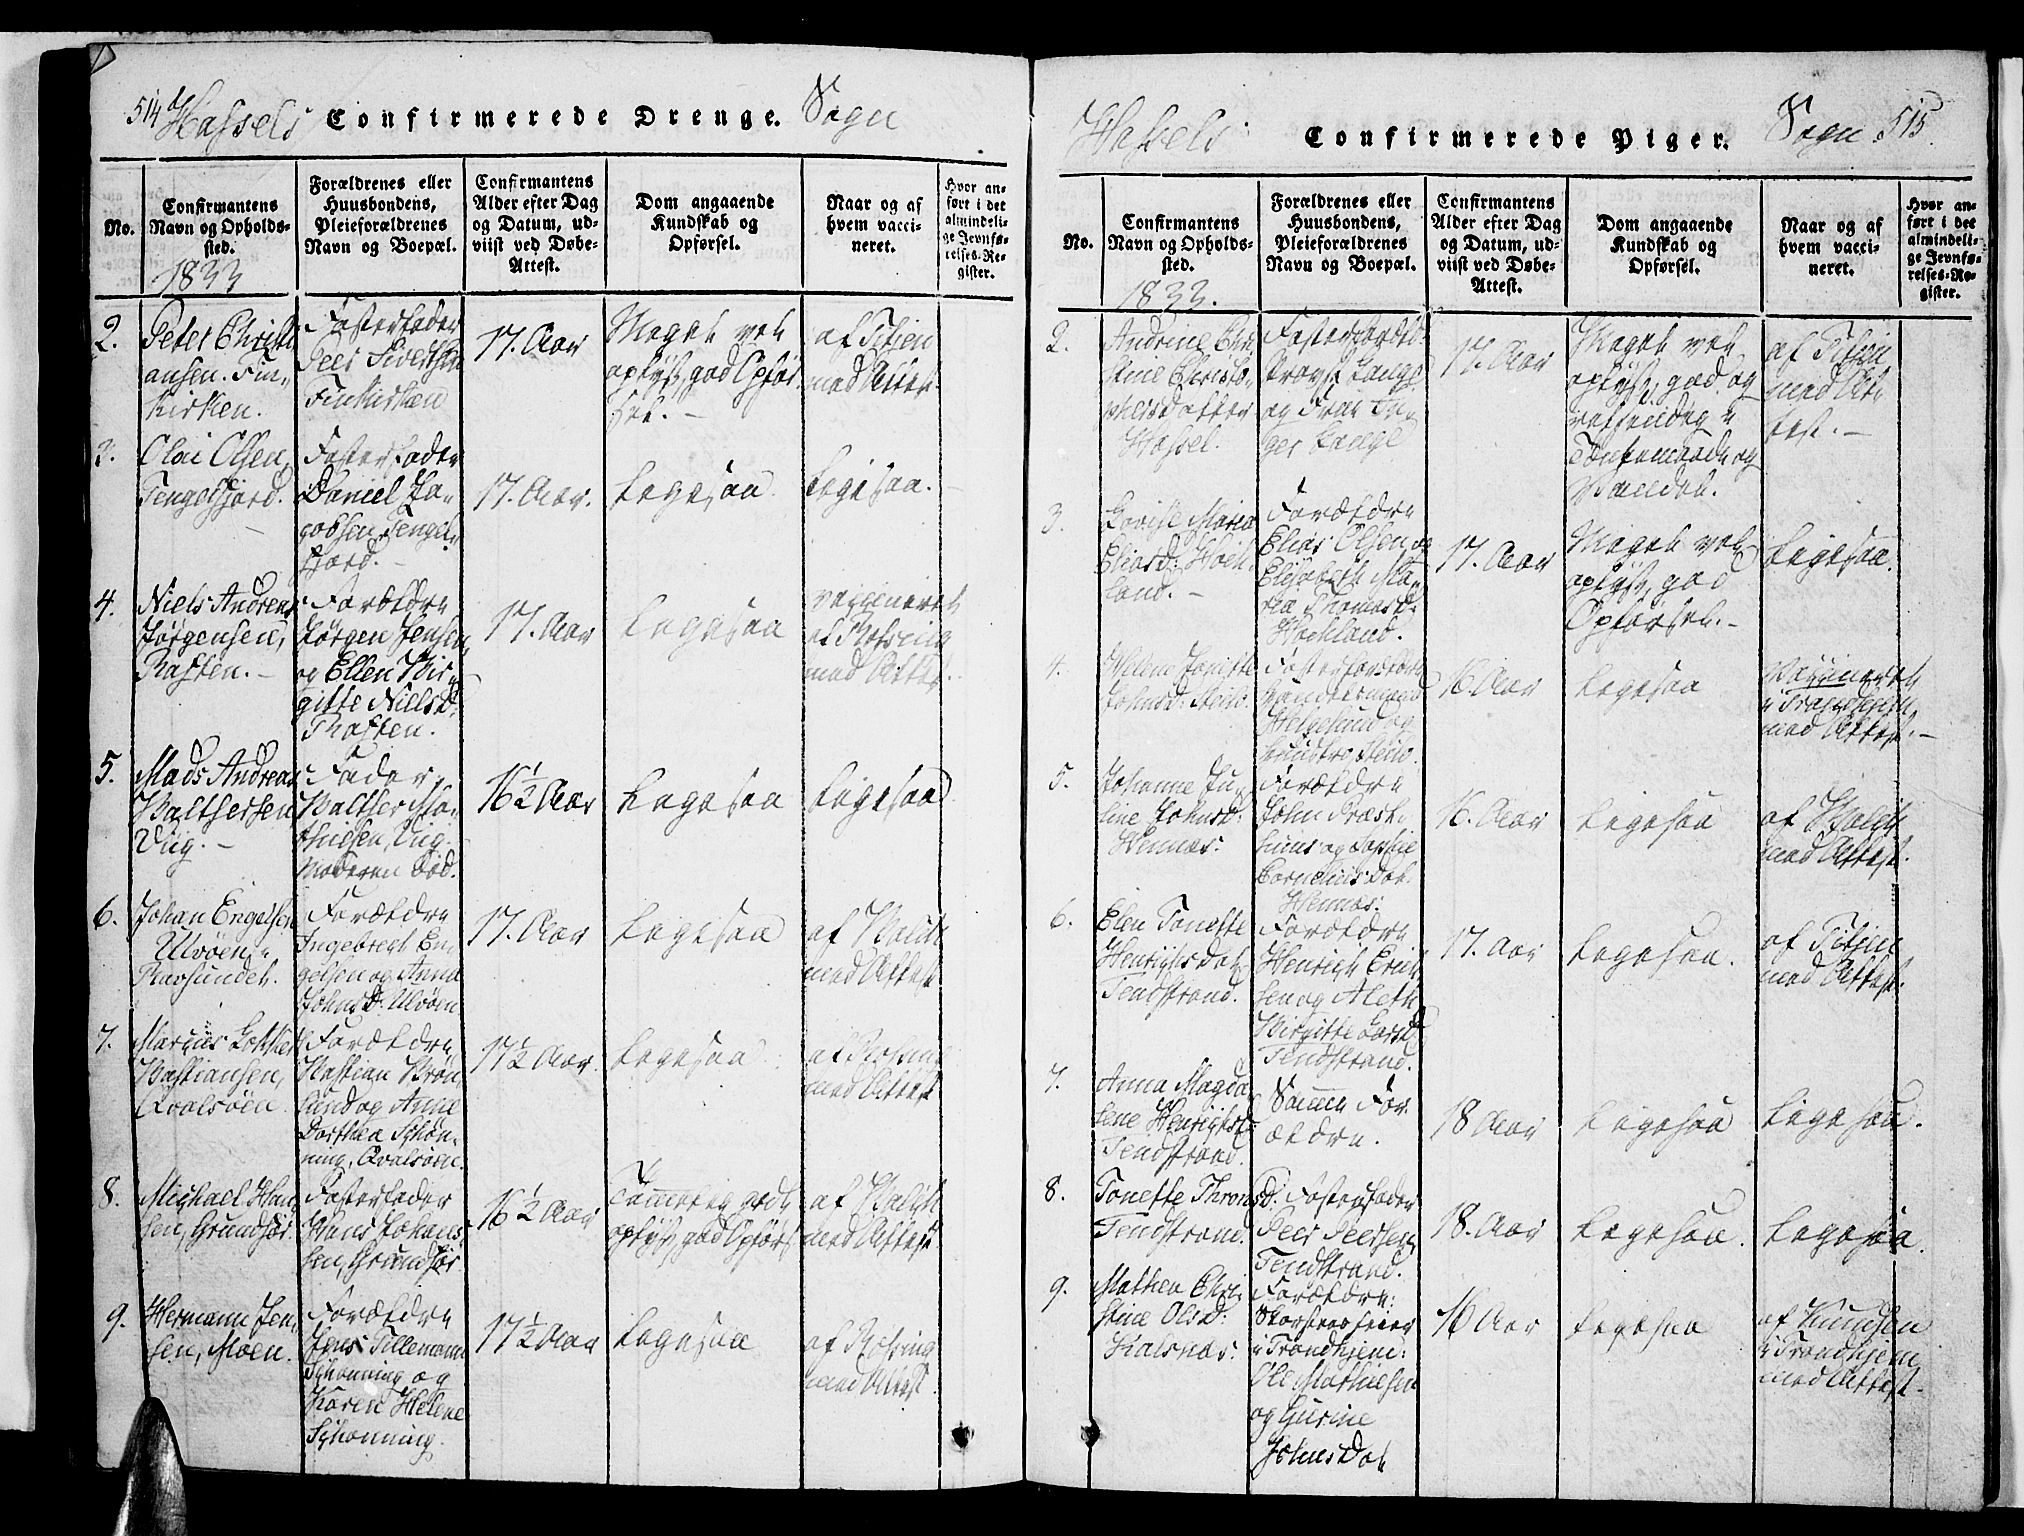 514 Hassels Confirmerede Drenge. Sogn
No.
Confirmantens
Navn og Opholds-
sted.
1833
Forældrenes eller
Huusbondens,
Pleieforældrenes
Navn og Boepæl.
Confirmantens
Alder efter Dag
og Datum, ud-
viist ved Døbe-
Attest.
Dom angaaende
Kundskab og
Opførsel.
Naar og af
hvem vacci-
neret.
Hvor an-
ført i det
almindeli-
ge Jevnfø-
relses-Re-
gister.
2.
Peter Christi
ansen. Fin-
kirken.
Fosterfader
Peer Sivertsen
Finkirken
17. Aar
Meget vel
oplyst, god Opfør
sel. -
af Titjen
med Attest.
3.
Olai Olsen,
Tengelfjord.
Fosterfader
Daniel Ja-
gobsen, Tengel-
fjord. -
17. Aar.
Ligesaa.
Ligesaa. -
4.
Niels Andreas
Jørgensen,
Raften. -
Forældre
Jørgen Jensen
og Ellen Bir-
gitte Nielsd:
Raften.
17. Aar
Ligesaa
vaccineret
af Rossing
med Attest.
5.
Mads Andreas
Balthersen
Vug. -
Fader,
Balther Ma-
thiesen, Vug.
Moderen Død.
16½ Aar
Ligesaa
Ligesaa
6.
Johan Engelsen
Ulvøen
Ravsundet.
Forældre
Ingebrect En-
gelsen og Anna
Johnsd: Ulvøen
17. Aar
Ligesaa
af
med Attest
7.
Marcus
Bastiansen,
Qvalsøen.
Forældre
Bastian Brøn
lund og Anne
Dorthea Schøn-
ning, Qvalsøen.
17½ Aar.
Ligesaa.
af Rossing
med Attest
8.
Michael Han
sen, Grundfør.
Fosterfader
Hans Johans
sen, Grundfør
16½ Aar
Temmelig godt
oplyst, god Opførs
af
med Attest
9.
Hermann Jen
sen, Moen.
Forældre
Jens Tillemann
Schønning og
Karen Helene
Schønning.
17½ Aar
Ligesaa
af Rossing
med Attest.
Hassels Confirmerede Piger. Sogn. 515
No.
Confirmantens
Navn og Opholds-
sted.
1833.
Forældrenes eller
Huusbondens,
Pleieforældrenes
Navn og Boepæl.
Confirmantens
Alder efter Dag
og Datum, ud-
viist ved Døbe-
Attest.
Dom angaaende
Kundskab og
Opførsel.
Naar og af
hvem vacci-
neret.
Hvor an-
ført i det
almindeli-
ge Jevnfø-
relses-Re-
gister.
2.
Andrine Chri
stine Christo-
phersdatter
Hassel.
Fosterforæld:
Provst Lange
og Frue In-
ger Lange
17. Aar
Meget vel
oplyst, god og
retsindig i
Tænkemaade og
Vandel.
af Titjen
med At-
test. -
3.
Lovise Maria
Eliasd: Hock-
land. -
Forældre
Elias Olsen og
Elisabeth Ma-
ria Thomasd:
Hockland.
17. Aar
Meget vel
oplyst, god
Opførsel. -
Ligesaa.
4.
Johnsd:
Fosterforældre
Handelsmand
Helgesund og
Hustru
16 Aar
Ligesaa
Vaccineret
i Trondhjem,
med Attest. -
5.
Johanne Ju-
line Johnsd:
Hennæs.
Forældre
John Præst-
huus og Sophie
Corneliusdat.
Hennæs.
16. Aar
Ligesaa
af
med Attest.
6.
Elen Tonette
Henrichsdat
Tendstrand.
Forældre
Henrich Erich
sen og Aleth
Birgitte Larsd
Tendstrand.
17. Aar
Ligesaa.
af Titjen
med Attest.
7.
Anna Magda
lene Henrichsd:
Tendstrand.
Samme For-
ældre.
18 Aar
Ligesaa
Ligesaa.
8.
Tonette Thronsd:
Tendstrand.
Fosterfader
Peer Peersen,
Tendstrand.
18. Aar
Ligesaa.
Ligesaa.
9.
Mathea Chri
stine Olsd:
Kalsnæs.
Forældre:
Skorsteensfeier
i Trondhjem:
Ole Mathiesen
og Gurine
Johnsdat
16 Aar
Ligesaa
af Knudsen
i Trondhjem
med Attest.